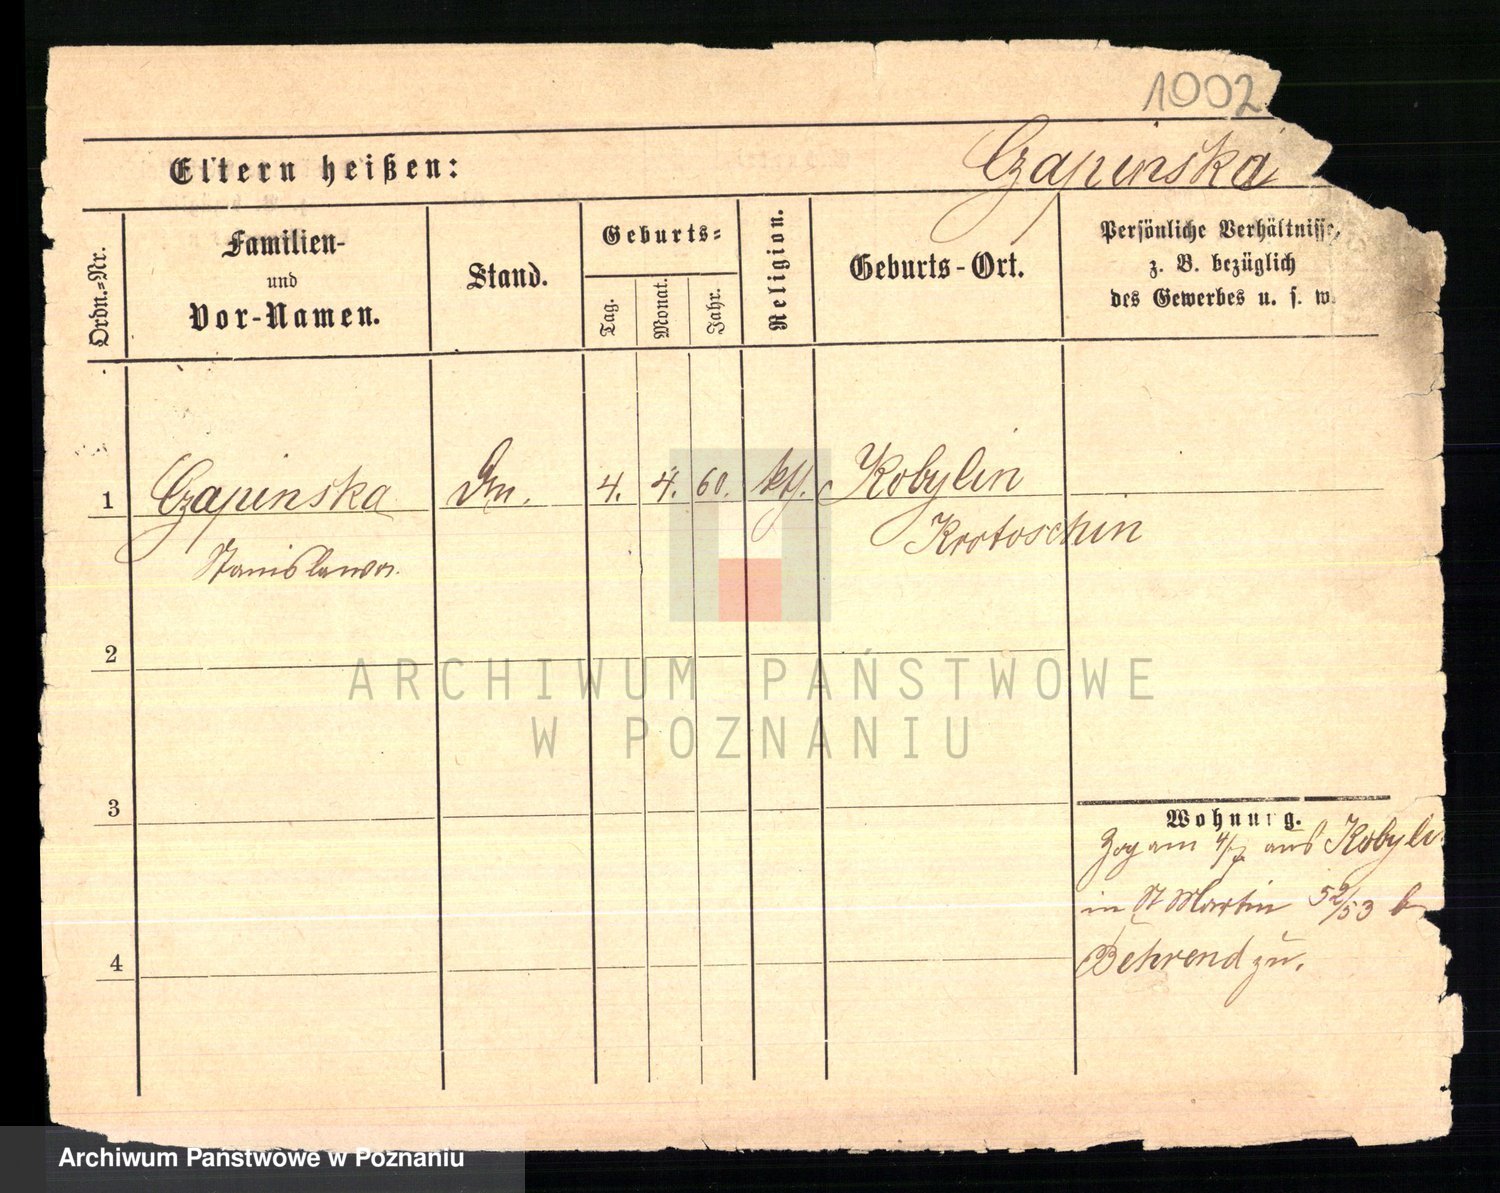 1002
Eltern heißen:
Czapinska
Ordn.-Nr.
Familien-
und
Vor-Namen.
Stand.
Geburts-
Tag.
Monat.
Jahr.
Religion.
Geburts-Ort.
Persönliche Verhältnisse,
z. B. bezüglich
des Gewerbes u. s. w.
1
Czapinska
Stanislawa
4. 4. 60. kth.
Kobylin
Krotoschin
2
3
4
Wohnung.
Zog am 4/7 aus Kobyli
in St Martin 52/53 b
Behrend zu.
ARCHIWUM PAŃSTWOWE
W POZNANIU
Archiwum Państwowe w Poznaniu